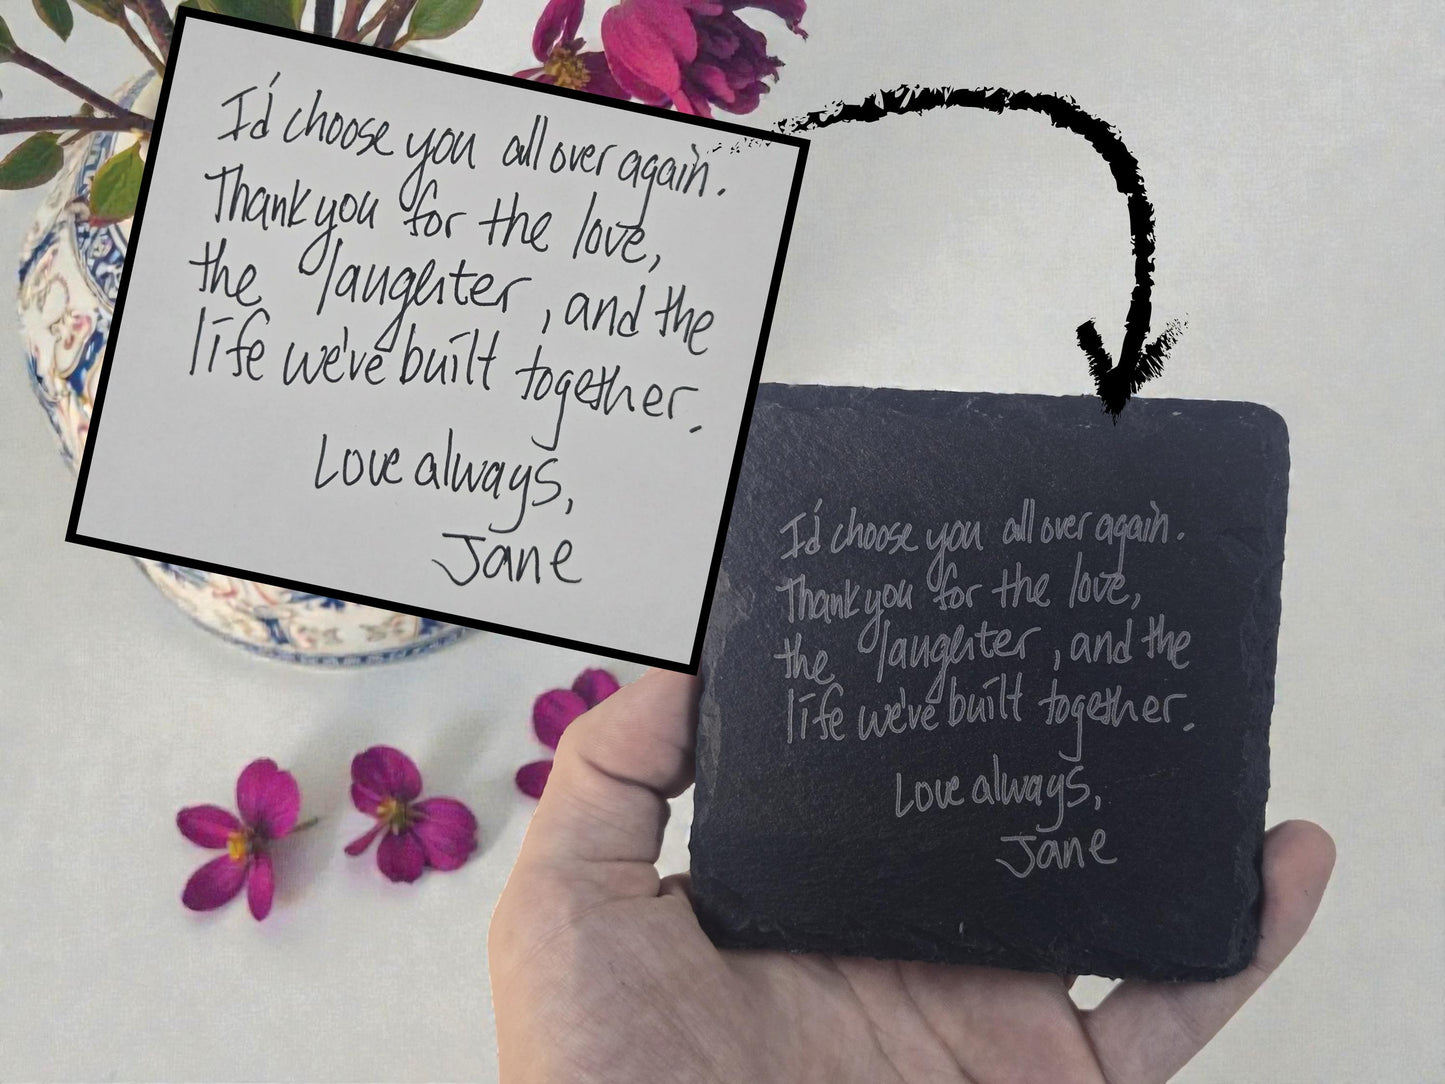 I'd choose you all over again.
Thank you for the love,
the laughter, and the
life we've built together.
Love always,
Jane
I'd choose you all over again.
Thank you for the love,
the laughter, and the
life we've built together.
Love always,
Jane